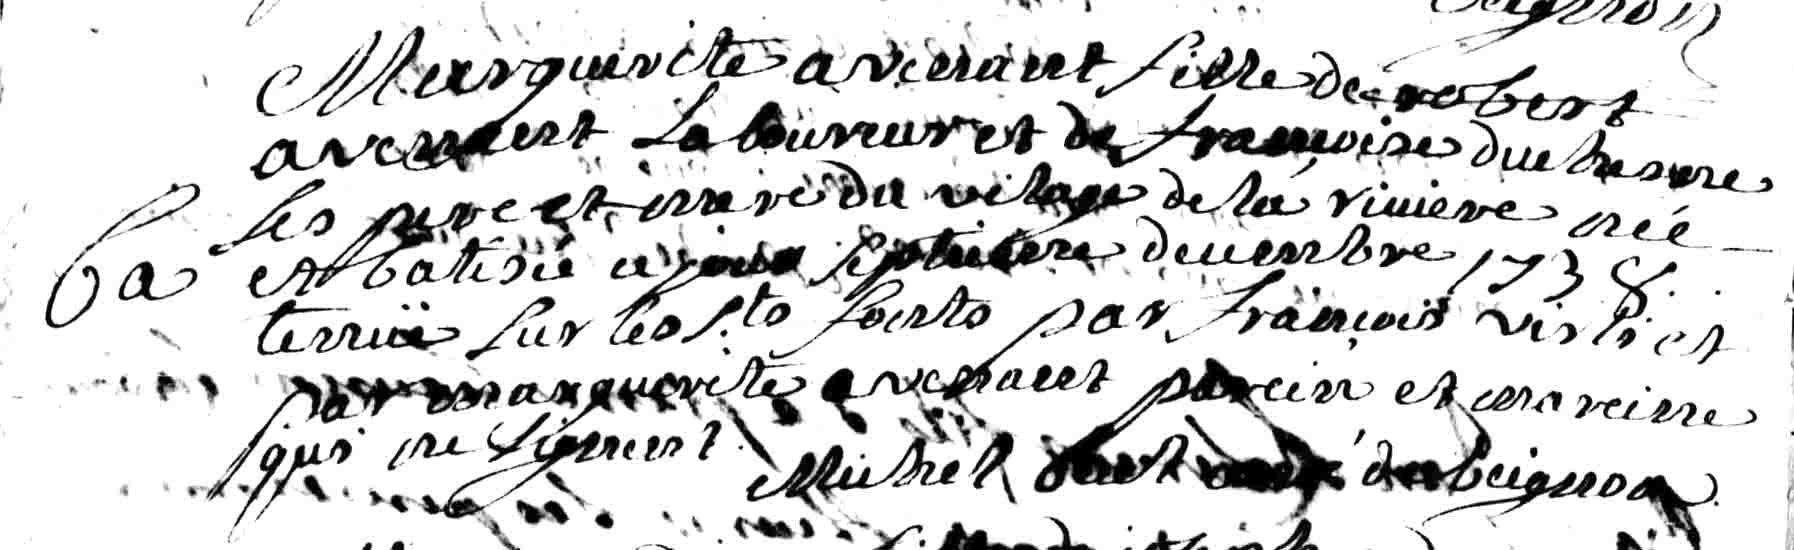 Marguerite avenant fille de robert
avenant Laboureur et de françoise duchesne
ses pere et mere du vilage de la riuiere née
ba et batisée ce jour septieme decembre 1738.
tenuë sur les s.ts fonts par françois
par marguerite avenant parein et mareine
qui ne signent.
Michel de beignon